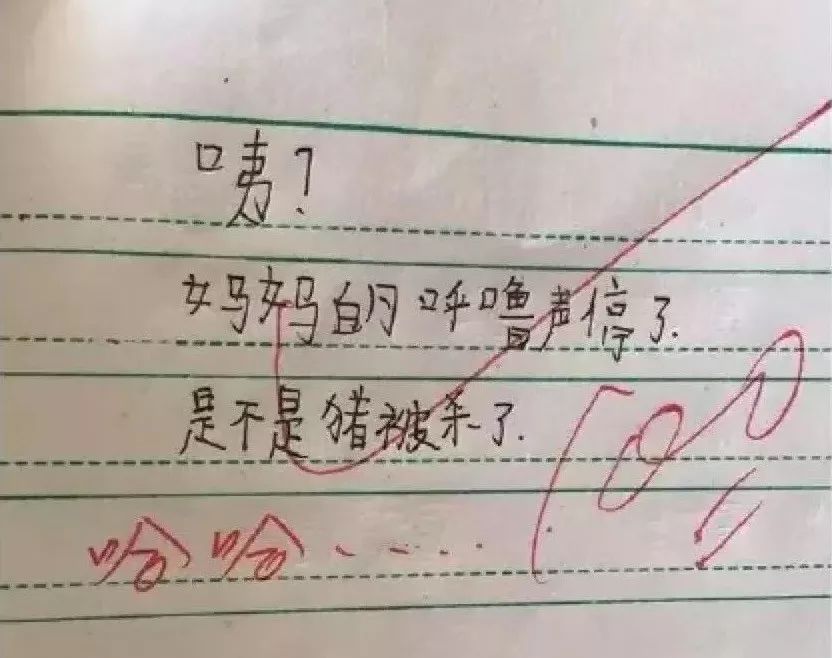 咦？
妈妈的呼噜声停了.
是不是猪被杀了.
100
哈哈.....